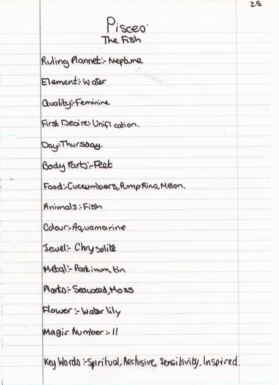 28
Pisces
The Fish
Ruling Plannet:- Neptune
Element:- Water
Quality:- Feminine
First Desire: Unification.
Day:- Thursday.
Body Parts:- Feet
Food:- Cucumbers, Pumpkins, Melon.
Animals:- Fish
Colour:- Aquamarine
Jewel:- Chrysolite
Metal:- Platinum, tin
Plants:- Seaweed, Moss
Flower:- Water lily
Magic Number:- 11
Key Words:- Spiritual, Reclusive, Sensitivity, Inspired.